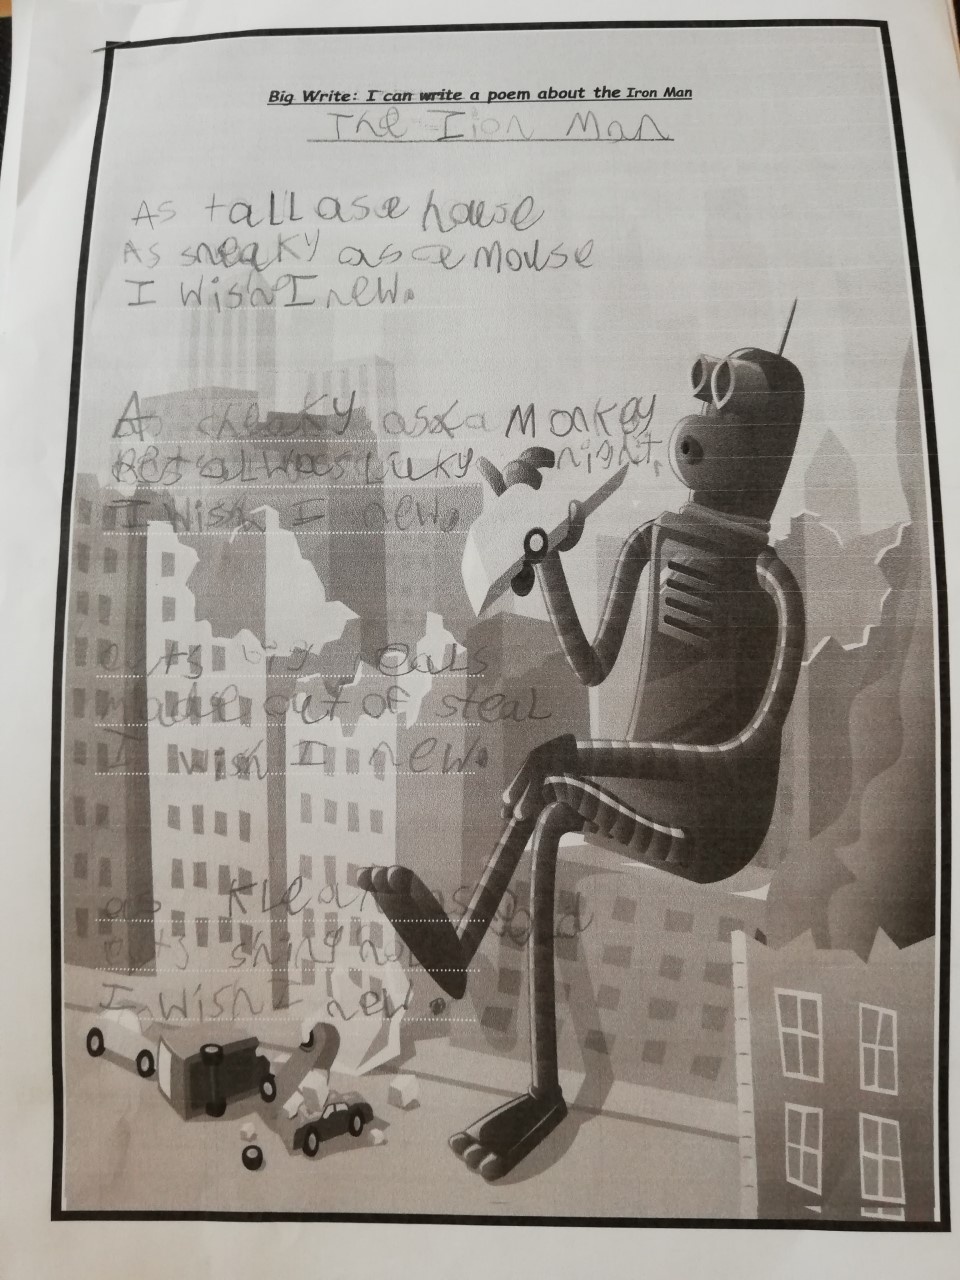 Big Write: I can write a poem about the Iron Man
The Iron Man
As tall as a house
As sneaky as a mouse
I wish I new.
As cheeky as a Monkey
night.
I wish I new.
eats big meals
made out of steal
I wish I new.
as klear as gold
eats shiny
I wish I new.